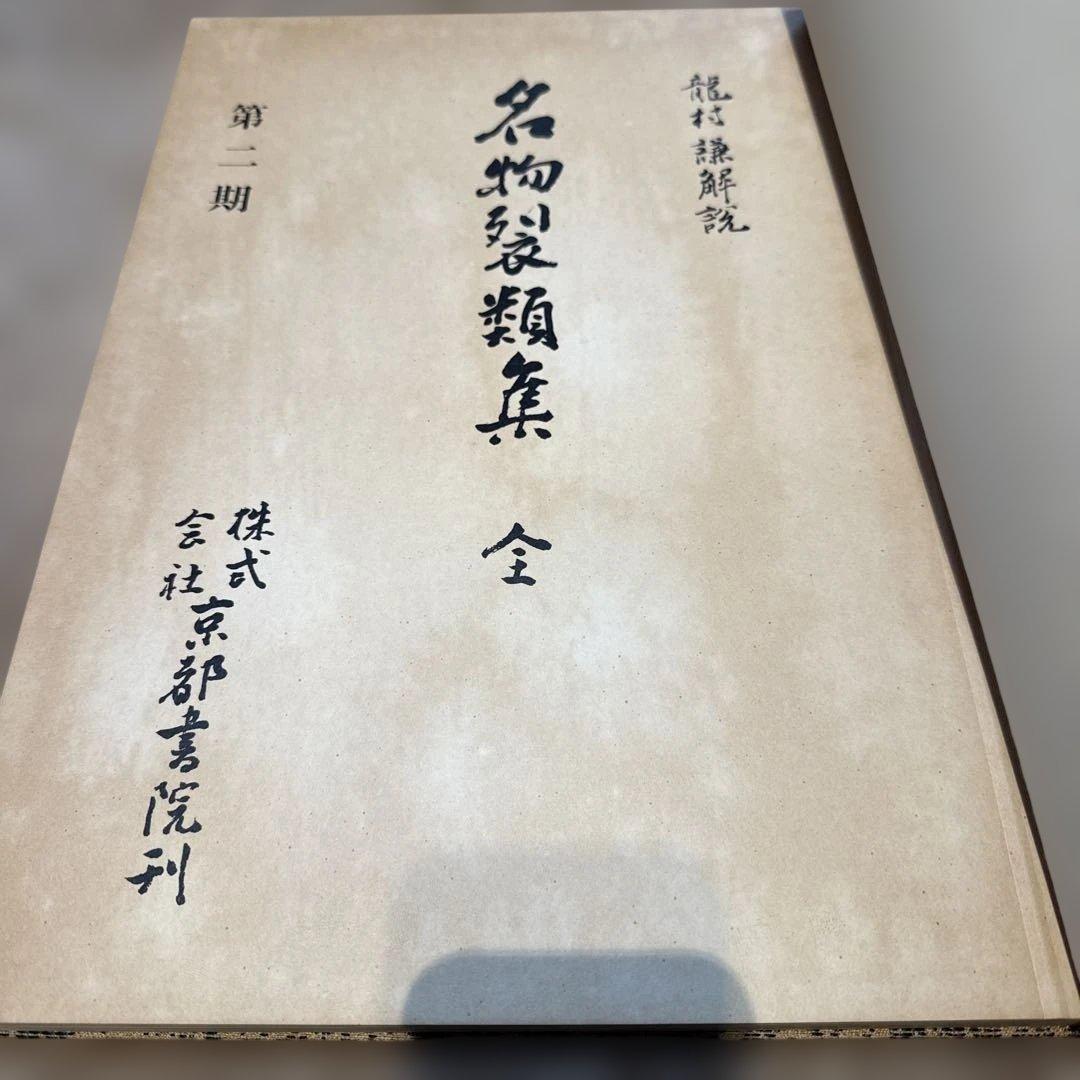 龍村謙解説
名物裂類集 全
第二期
株式
会社
京都書院刊